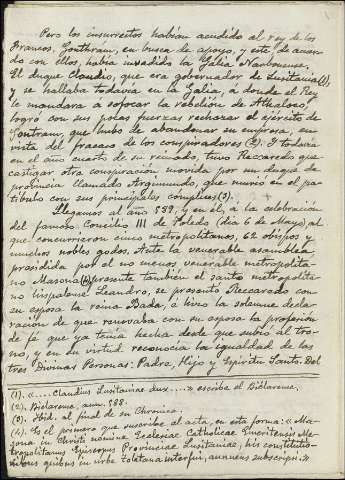 Pero los insurrectos habían acudido al rey de los
Francos, Gonthram, en busca de apoyo, y este, de acuer-
do con ellos, había invadido la Galia Narbonense.
El duque Claudio, que era gobernador de Lusitania (1),
y se hallaba todavía en la Galia, a donde el Rey
le mandara á sofocar la rebelión de Athaloco,
logró con sus pocas fuerzas rechazar el ejército de
Gontram, que hubo de abandonar su empresa, en
vista del fracaso de los conspiradores (2). Y todavía
en el año cuarto de su reinado, tuvo Reccaredo que
castigar otra conspiración movida por un duque de
provincia llamado Argimundo, que murió en el pa-
tíbulo con sus principales cómplices (3).
Llegamos al año 589, y en él, a la celebración
del famoso Concilio III de Toledo (día 6 de Mayo) al
que concurrieron cinco metropolitanos, 62 obispos y
muchos nobles godos. Ante la venerable asamblea
presidida por el no menos venerable metropolita-
no Masona (4) presente también el santo metropolita-
no hispalense Leandro, se presentó Reccaredo con
su esposa la reina Bada, é hizo la solemne decla-
ración de que renovaba con su esposa la profesión
de fe que ya tenía hecha desde que subió al tro-
no, y en su virtud reconocía la igualdad de las
tres Divinas Personas: Padre, Hijo y Espíritu Santo. Del
(1). «.... Claudius Lusitaniae dux....» escribe el Biclarense.
(2). Biclarense, ann. 588.
(3). Ibid. al final de su Chronica.
(4). Es el primero que suscribe el acta, en esta forma: «Ma-
sona in Christi nomine Ecclesiae Catholicae Emeritensis Me-
tropolitanus Episcopus Provinciae Lusitaniae, his constitutio-
nibus quibus in urbe toletana interfui, annuens subscripsi.»